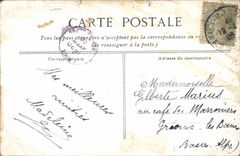 CARTE POSTALE
Tous les pays étrangers n'acceptent pas la correspondance au recto
(se renseigner à la poste)
Correspondance
Adresse du destinataire
Mes meilleures
amitiés
Madeleine
Mademoiselle
Gilberte Marius
au café des Marronniers
les Bains
Basses Alpes